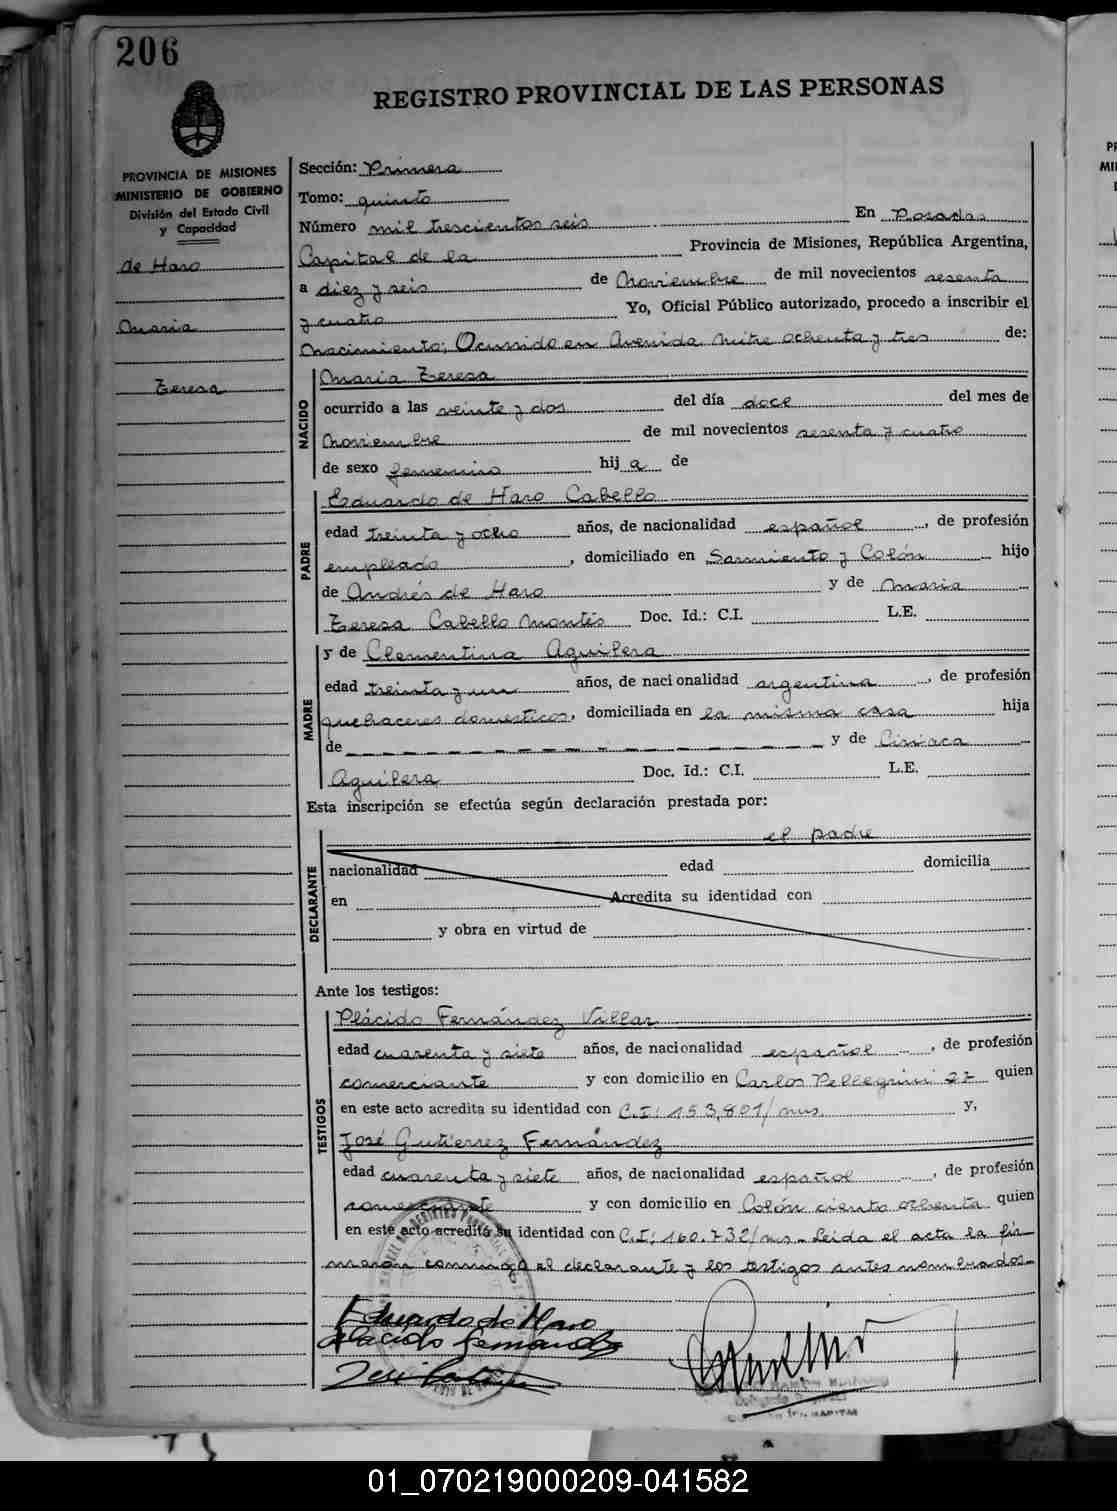 206
REGISTRO PROVINCIAL DE LAS PERSONAS
PROVINCIA DE MISIONES
MINISTERIO DE GOBIERNO
División del Estado Civil
y Capacidad
de Haro
Maria
Teresa
Sección: Primera
Tomo: quinto
Número mil trescientos seis En Posadas
Capital de la Provincia de Misiones, República Argentina,
a diez y seis de Noviembre de mil novecientos sesenta
y cuatro Yo, Oficial Público autorizado, procedo a inscribir el
Nacimiento; Ocurrido en Avenida Mitre ochenta y tres de:
NACIDO
Maria Teresa
ocurrido a las veinte y dos del día doce del mes de
Noviembre de mil novecientos sesenta y cuatro
de sexo femenino hija de
PADRE
Eduardo de Haro Cabello
edad treinta y ocho años, de nacionalidad español, de profesión
empleado, domiciliado en Sarmiento y Colón hijo
de Andrés de Haro y de Maria
Teresa Cabello Montés Doc. Id.: C.I. L.E.
MADRE
y de Clementina Aguilera
edad treinta y un años, de nacionalidad argentina, de profesión
quehaceres domesticos, domiciliada en la misma casa hija
de y de Ciriaca
Aguilera Doc. Id.: C.I. L.E.
Esta inscripción se efectúa según declaración prestada por:
el padre
DECLARANTE
nacionalidad edad domicilia
en Acredita su identidad con
y obra en virtud de
Ante los testigos:
TESTIGOS
Plácido Fernández Villar
edad cuarenta y siete años, de nacionalidad español, de profesión
comerciante y con domicilio en Carlos Pellegrini 27 quien
en este acto acredita su identidad con C.I: 153,801/mns. y,
José Gutierrez Fernández
edad cuarenta y siete años, de nacionalidad español, de profesión
comerciante y con domicilio en Colón ciento ochenta quien
en este acto acredita su identidad con C.I: 160.732/mns - Leida el acta la fir-
maron conmigo el declarante y los testigos antes nombrados.-
Eduardo de Haro
Placido Fernandez
01_070219000209-041582